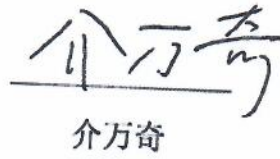 介万奇
介万奇